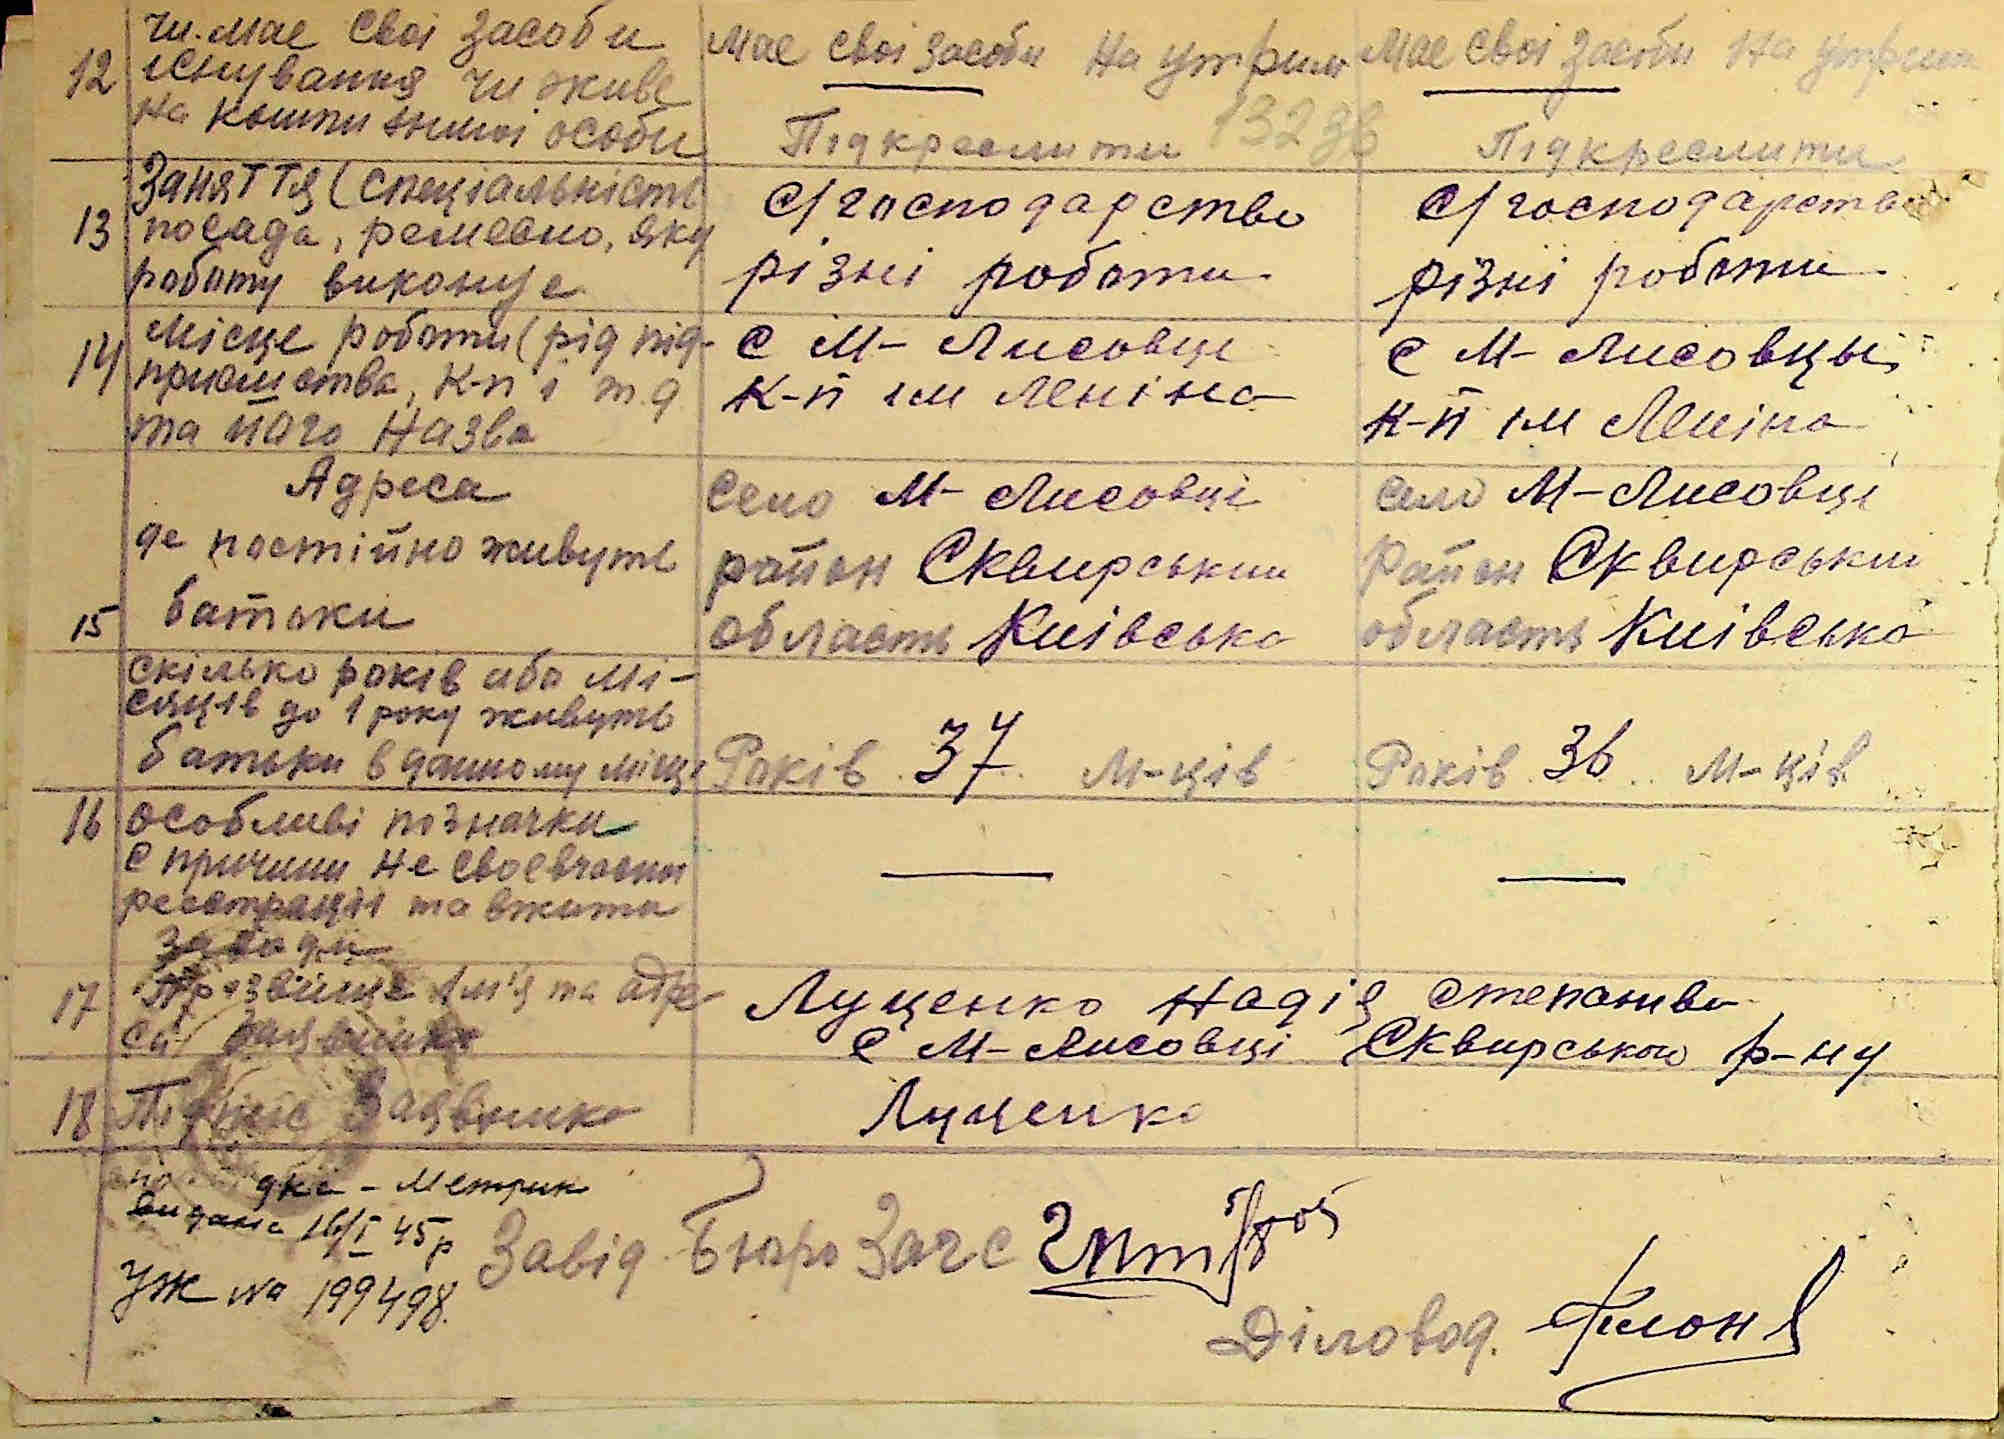 12
чи має свої засоби
існування чи живе
на кошти іншої особи
Має свої засоби На утрим
Підкреслити
Має свої засоби На утрим
Підкреслити
132 зв
13
Заняття (спеціальність
посада, ремесло, яку
роботу виконує
С/господарство
різні роботи
С/господарство
різні роботи
14
Місце роботи (рід під-
приємства, к-п і т.д
та його назва
с М-Лисовці
к-п ім Леніна
с М-Лисовцы
к-п ім Леніна
15
Адреса
де постійно живуть
батьки
село М-Лисовці
район Сквирський
область Київська
село М-Лисовці
район Сквирський
область Київська
скілько років або мі-
сяців до 1 року живуть
батьки в данному місці
Років 37 м-ців
Років 36 м-ців
16
особливі позначки
с причини не своєвчасної
реєстрації та вжити
заходи
17
Прізвище ім'я та адре-
са заявника
Луценко Надія Степанівна
с М-Лисовці Сквирського р-ну
18
Підпис Заявника
Луценко
дкі - Метрик
видане 16/I 45р
УЖ № 199498.
Завід. Бюро Загс
Діловод.